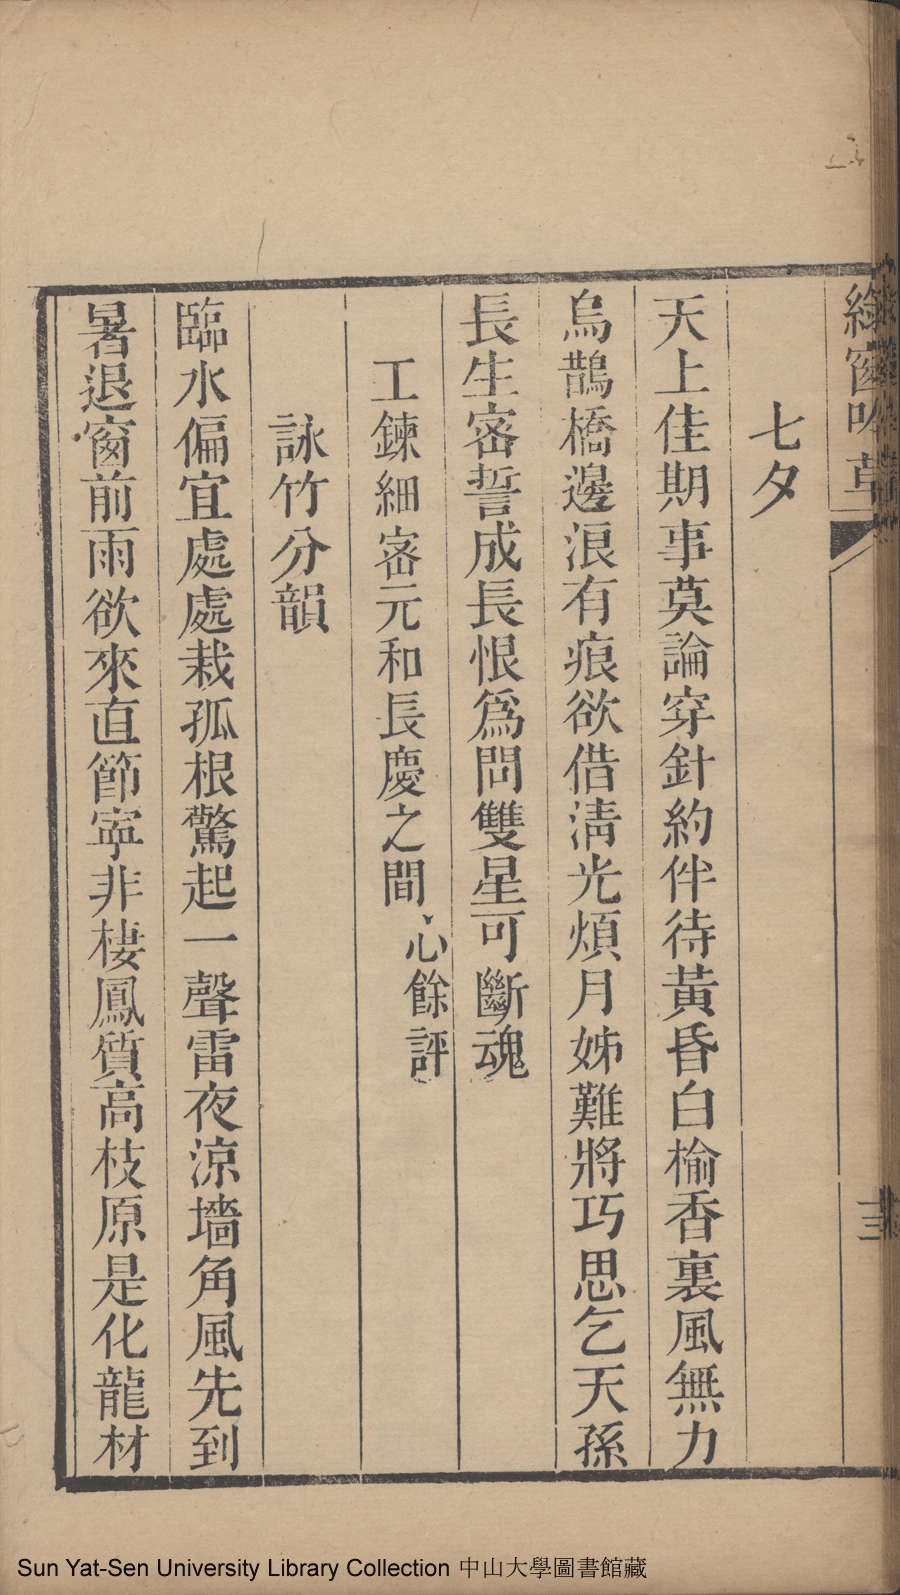 綠窗吟草
七夕
天上佳期事莫論穿針約伴待黃昏白榆香裏風無力
烏鵲橋邊浪有痕欲借淸光煩月姊難將巧思乞天孫
長生密誓成長恨爲問雙星可斷魂
工鍊細密元和長慶之間心餘評
詠竹分韻
臨水偏宜處處栽孤根驚起一聲雷夜涼墻角風先到
暑退窗前雨欲來直節寜非棲鳳質高枝原是化龍材
Sun Yat-Sen University Library Collection 中山大學圖書館藏